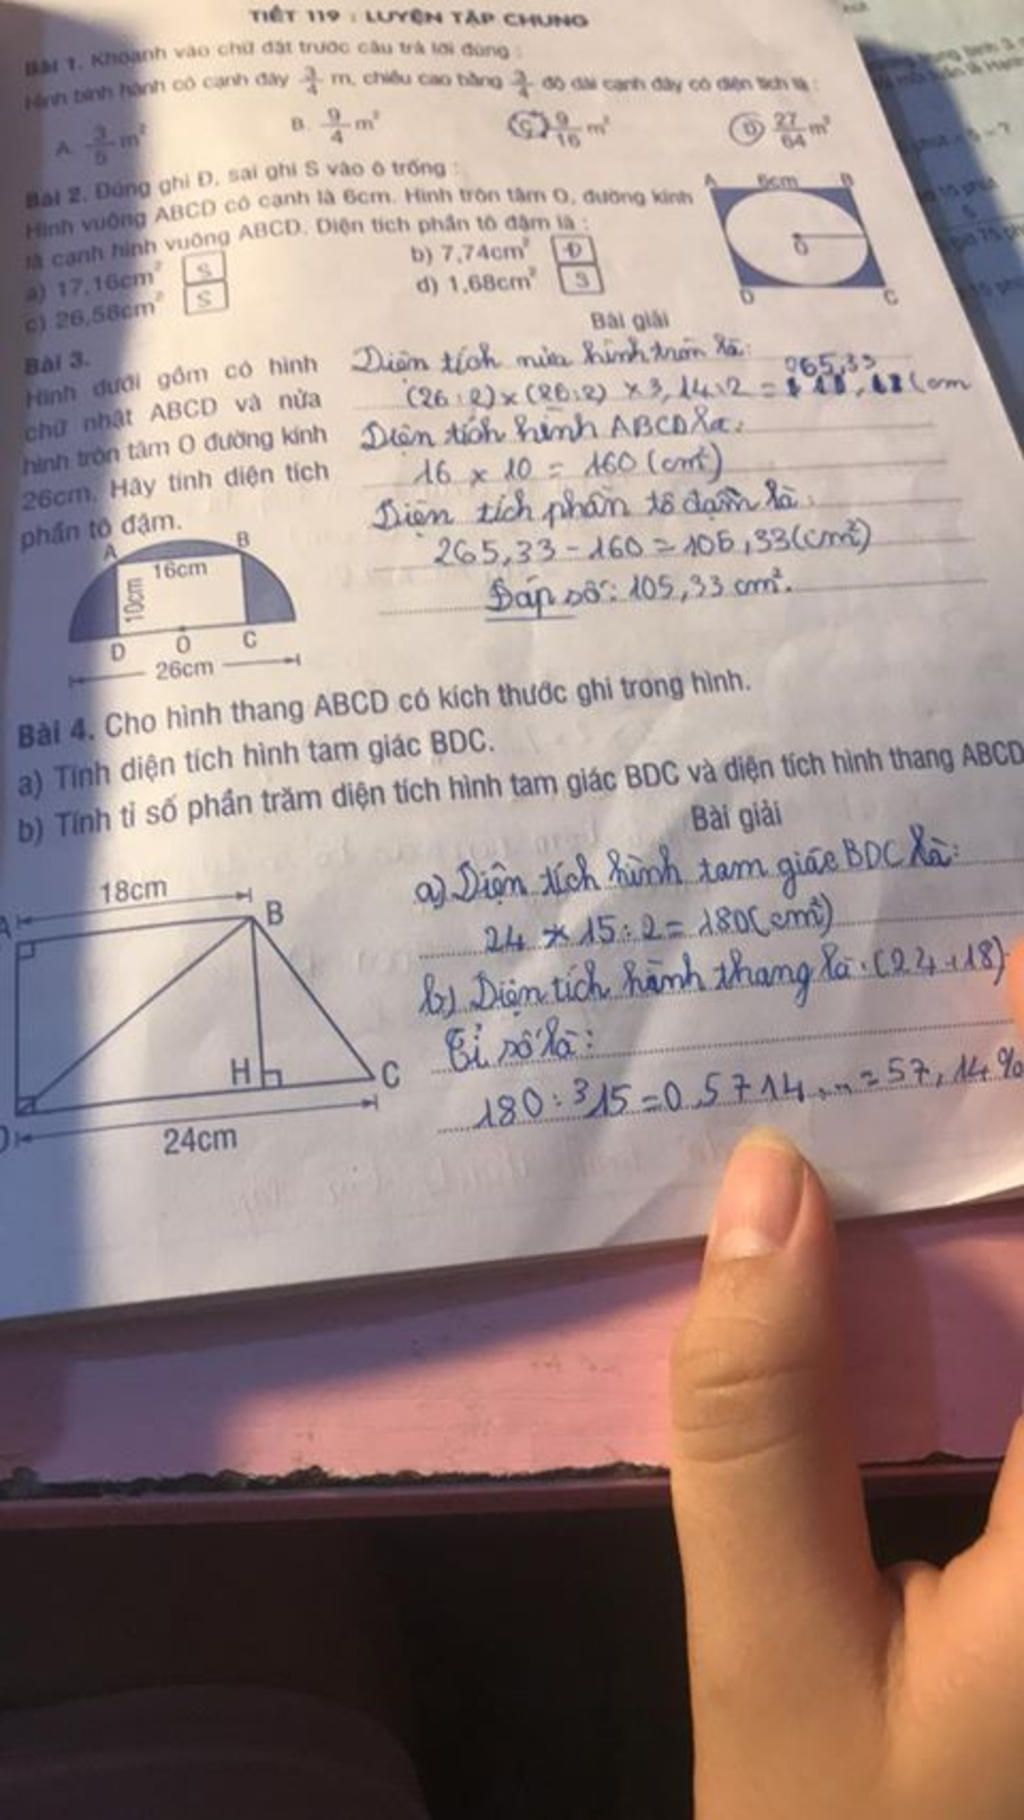 TIẾT 119 : LUYỆN TẬP CHUNG
Bài 1. Khoanh vào chữ đặt trước câu trả lời đúng :
Hình bình hành có cạnh đáy 3/4 m, chiều cao bằng 3/4 độ dài cạnh đáy có diện tích là :
A. 3/5 m² B. 9/4 m² C 9/16 m² D 27/64 m²
Bài 2. Đúng ghi Đ, sai ghi S vào ô trống :
Hình vuông ABCD có cạnh là 6cm. Hình tròn tâm O, đường kính
là cạnh hình vuông ABCD. Diện tích phần tô đậm là :
a) 17,16cm² S b) 7,74cm² Đ
c) 26,58cm² S d) 1,68cm² S
A 6cm B
O
D C
Bài 3.
Hình dưới gồm có hình
chữ nhật ABCD và nửa
hình tròn tâm O đường kính
26cm. Hãy tính diện tích
phần tô đậm.
A B
16cm
10cm
D O C
26cm
Bài giải
Diện tích nửa hình tròn là:
265,33
(26:2)x(26:2) x3,14:2= (cm
Diện tích hình ABCD là:
16 x 10 = 160 (cm²)
Diện tích phần tô đậm là:
265,33-160=105,33(cm²)
Đáp số: 105,33 cm².
Bài 4. Cho hình thang ABCD có kích thước ghi trong hình.
a) Tính diện tích hình tam giác BDC.
b) Tính tỉ số phần trăm diện tích hình tam giác BDC và diện tích hình thang ABCD
18cm
A B
H C
D
24cm
Bài giải
a) Diện tích hình tam giác BDC là:
24 x 15:2=180(cm²)
b) Diện tích hình thang là:(24+18)
Tỉ số là:
180:315=0,5714...=57,14%